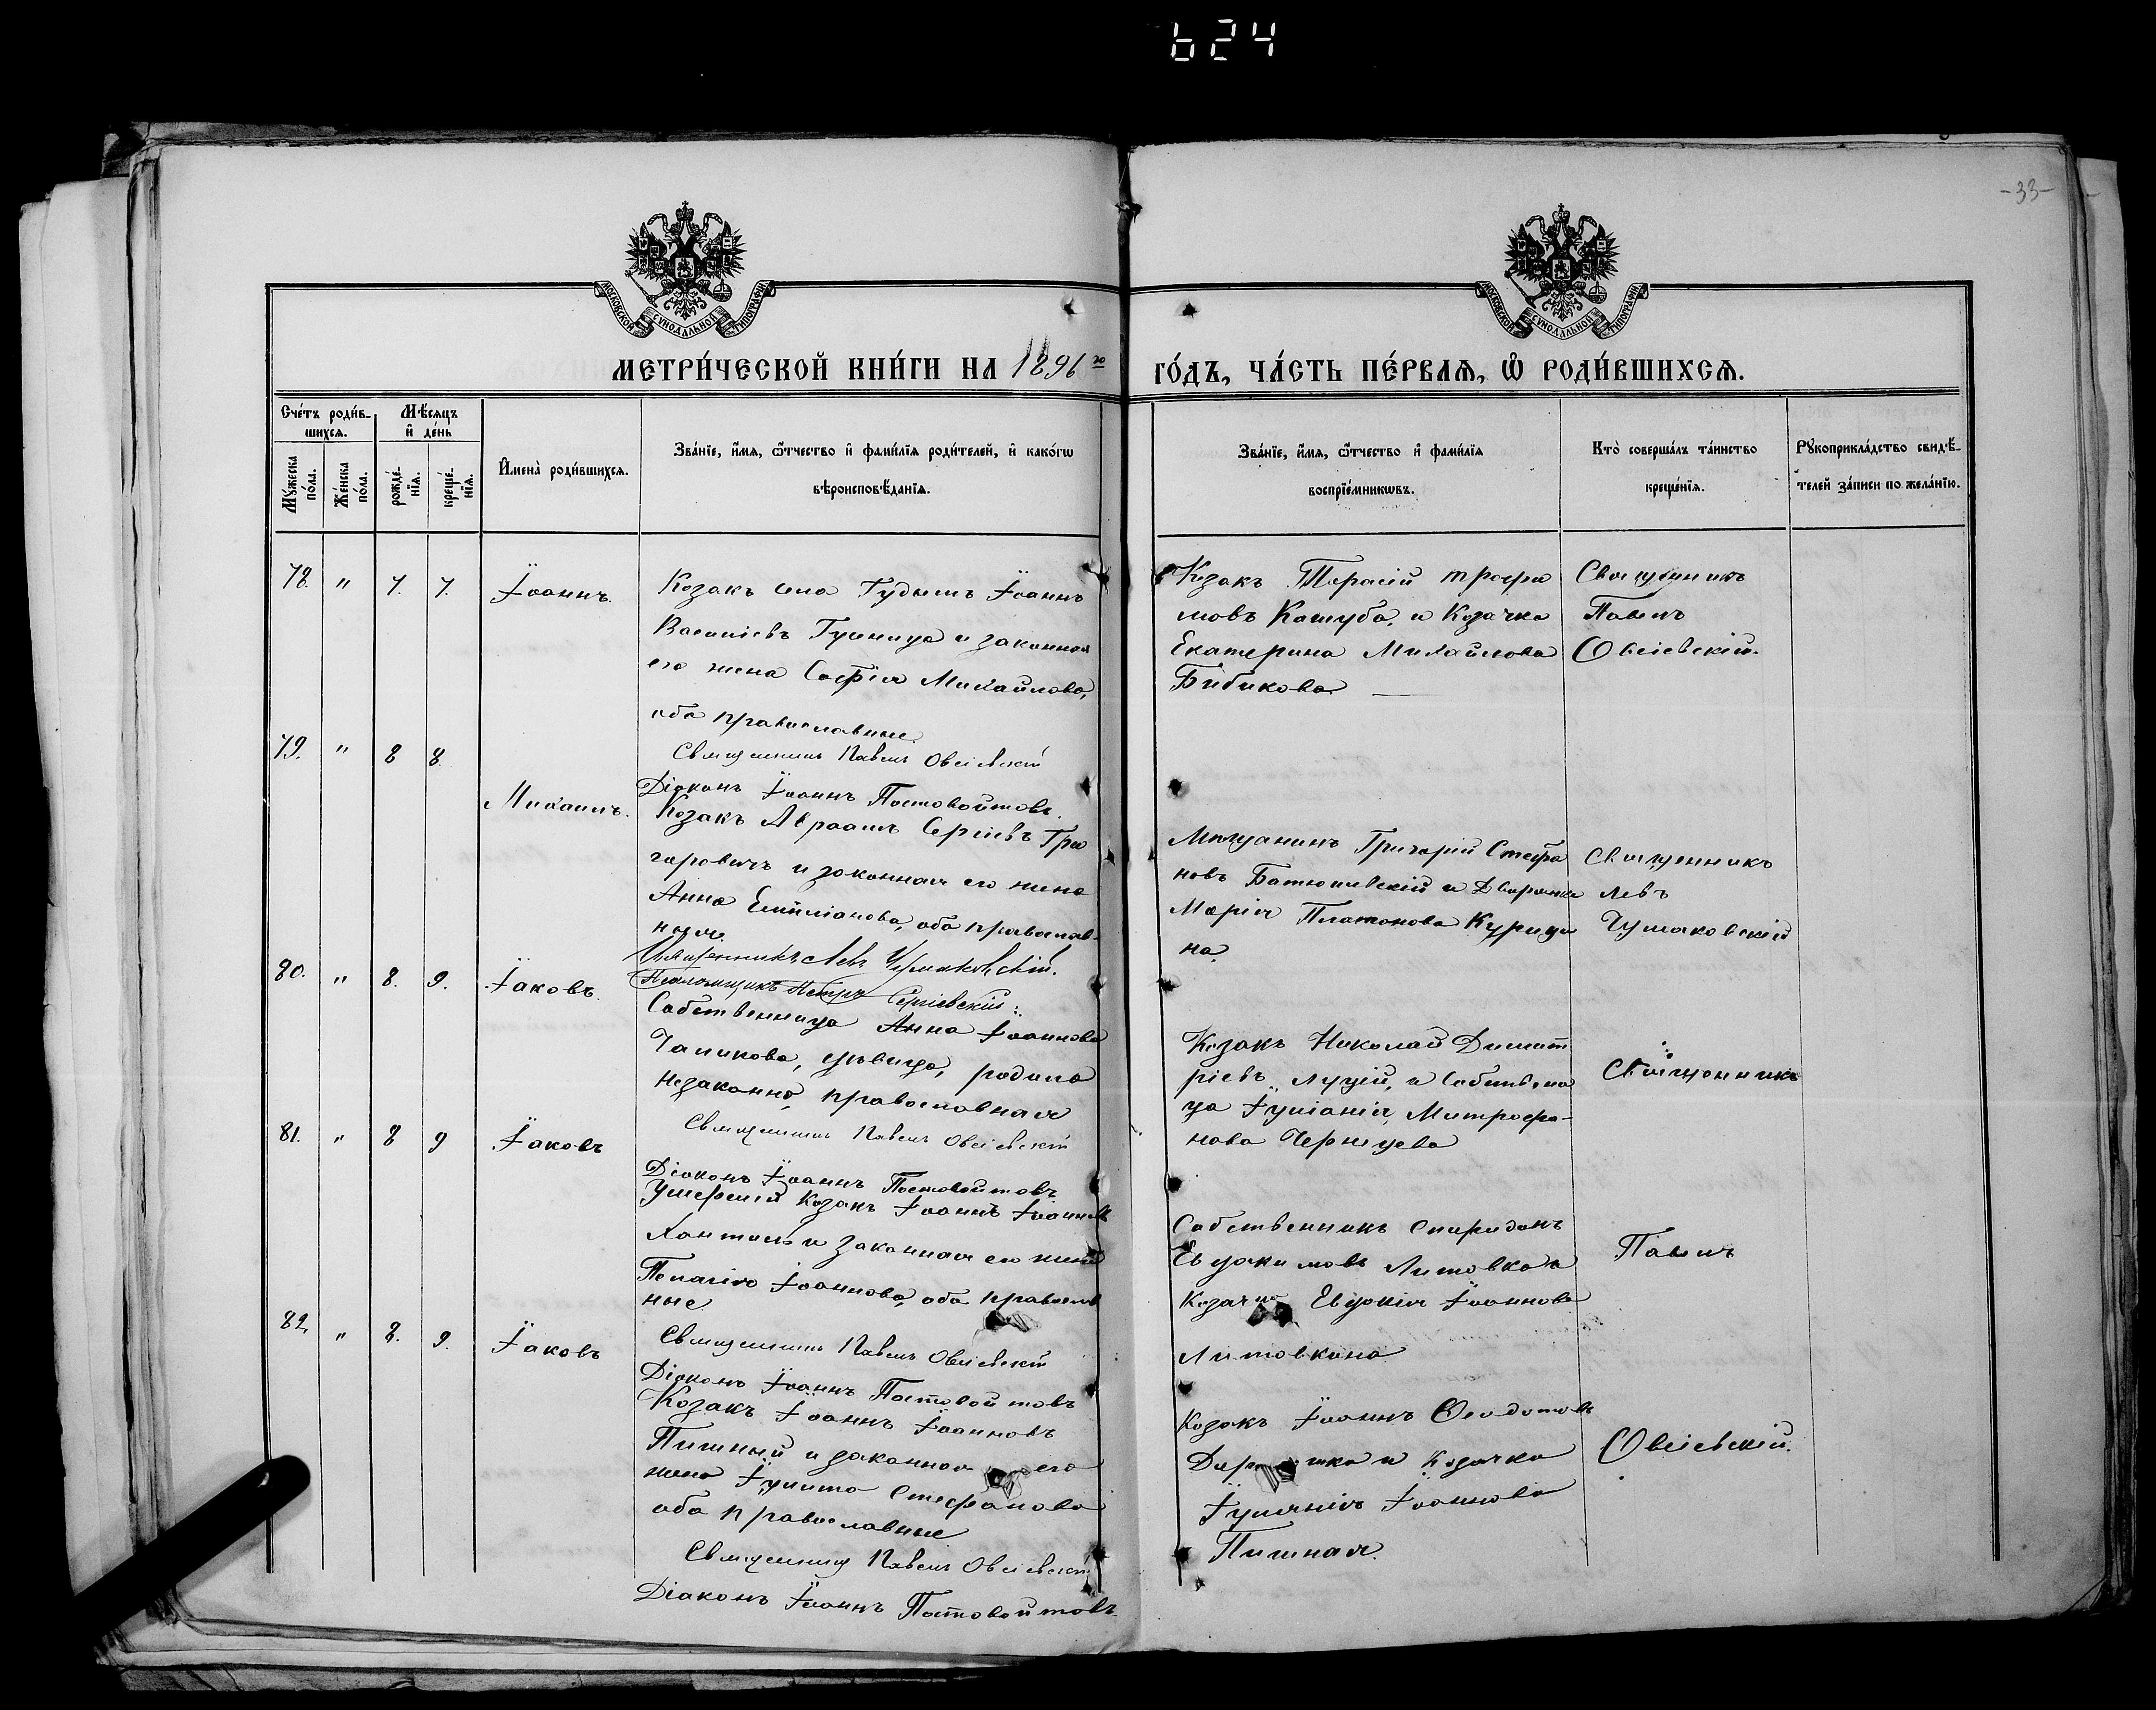 624
-33-
МОСКОВСКОЙ СѴНОДАЛЬНОЙ ТИПОГРАФІИ
МОСКОВСКОЙ СѴНОДАЛЬНОЙ ТИПОГРАФІИ
МЕТРИ́ЧЕСКОЙ КНИ́ГИ НА 1896 го
ГО́ДЪ, ЧА́СТЬ ПЕ́РВАѦ, Ѽ РОДИ́ВШИХСѦ.
Сче́тъ роди́в-
шихсѧ.
Мѣ́сѧцъ
и҆ де́нь
Мꙋ́жеска по́ла.
Же́нска по́ла.
рожде́нїѧ.
креще́нїѧ.
И҆мена̀ роди́вшихсѧ.
Зва́нїе, и҆́мѧ, ѻ҆́тчество и҆ фами́лїѧ роди́телей, и҆ како́гѡ
вѣроисповѣ́данїѧ.
Зва́нїе, и҆́мѧ, ѻ҆́тчество и҆ фами́лїѧ
воспрїе́мникѡвъ.
Кто̀ соверша́лъ та́инство
креще́нїѧ.
Рꙋкоприкла́дство свидѣ́-
телей за́писи по жела́нїю.
78. " 7. 7. Іоаннъ.
Козакъ села Гудымъ Іоаннъ
Василіевъ Гушница и законная
его жена Софія Михайлова,
оба православные.
Священникъ Павелъ Овсіевскій
Діаконъ Іоаннъ Постовойтовъ.
Козакъ Тарасій Трофи
мовъ Кашуба, и Козачка
Екатерина Михайлова
Бибикова
Священникъ
Павелъ
Овсіевскій.
79. " 8 8. Михаилъ.
Козакъ Авраамъ Сергіевъ Гри
горовичъ и законная его жена
Анна Емиліанова, оба православ-
ные.
Священникъ Левъ Чумаковскій.
Псаломщикъ Петръ Сергіевскій.
Мѣщанинъ Григорій Стефа
новъ Батюшевскій и Дворянка
Марія Платонова Курици
на.
Священникъ
Левъ
Чумаковскій
80. " 8. 9. Іаковъ.
Собственница Анна Іоаннова
Чапикова, дѣвица, родила
незаконно, православная
Священникъ Павелъ Овсіевскій
Діаконъ Іоаннъ Постовойтовъ.
Козакъ Николай Димит
ріевъ Луцій, и Собственни
ца Іуліанія Митрофа-
нова Чернцева
Священникъ
81. " 8 9 Іаковъ
Умершій Козакъ Іоаннъ Іоанновъ
Хантиль и законная его жена
Пелагія Іоаннова, оба православ
ные
Священникъ Павелъ Овсіевскій
Діаконъ Іоаннъ Постовойтовъ
Собственникъ Спиридонъ
Евдокимовъ Литовка и
Козачка Евдокія Іоаннова
Литовкина
Павелъ
82. " 8. 9. Іаковъ
Козакъ Іоаннъ Іоанновъ
Пишный и законная его
жена Іулита Стефанова
оба православные
Священникъ Павелъ Овсіевскій
Діаконъ Іоаннъ Постовойтовъ.
Козакъ Іоаннъ Ѳеодотовъ
и Козачка
Іуліанія Іоаннова
Пишная.
Овсіевскій.